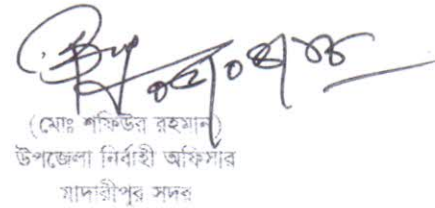 (মোঃ শফিউর রহমান)
উপজেলা নির্বাহী অফিসার
মাদারীপুর সদর